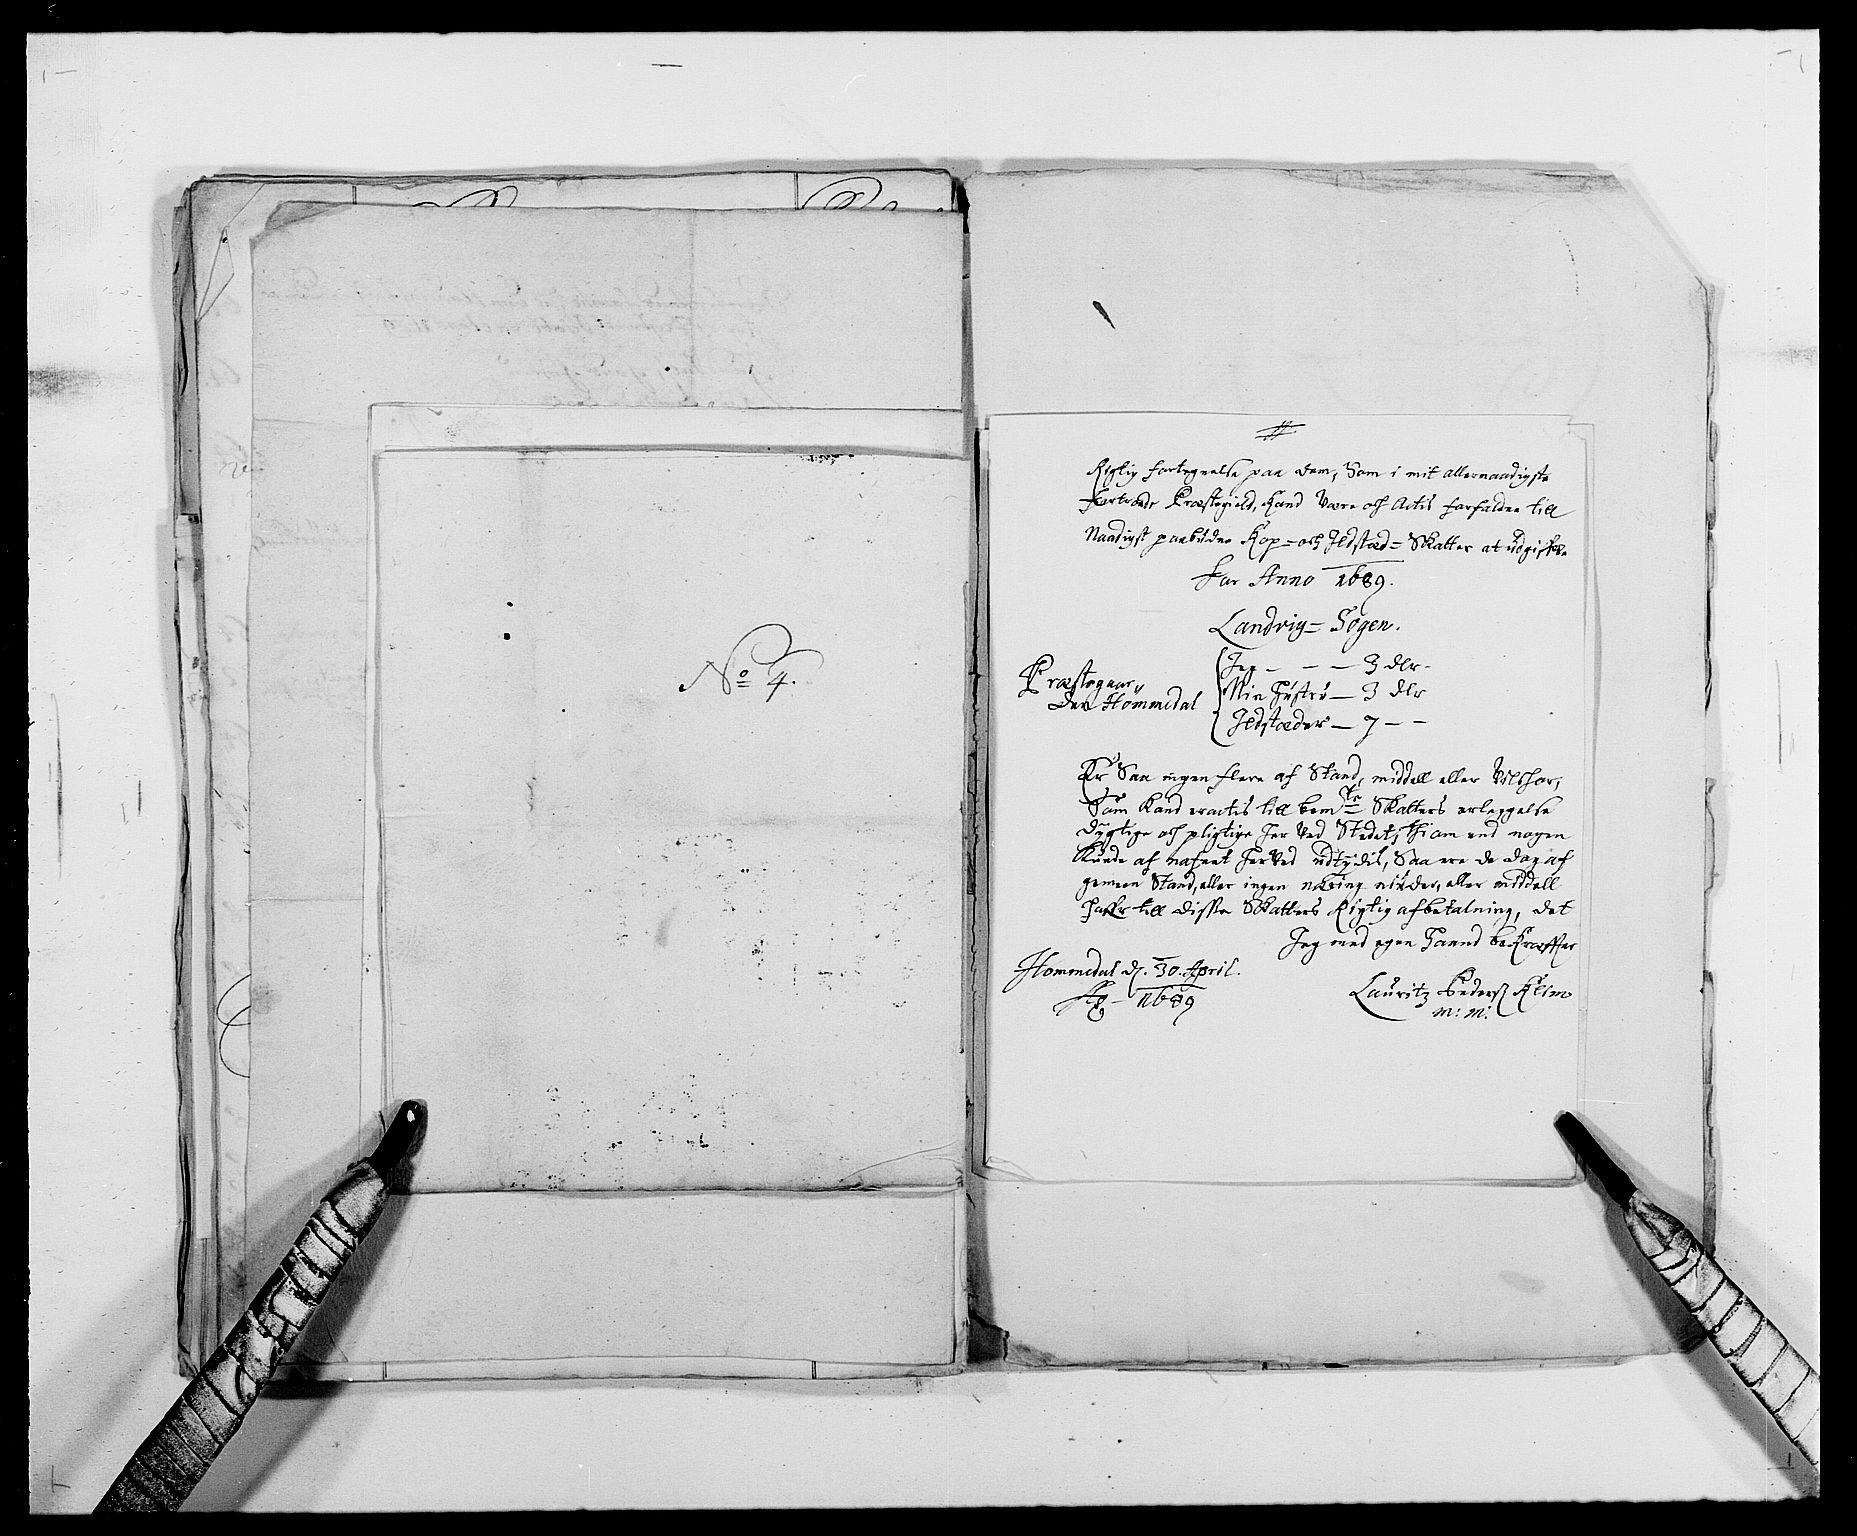 No 4.
Rigtig fortegnelse paa dem, Som i mit allernaadigste
Bertroede Præstegield, Kand Være och Actis forfalden till
Naadigst paabudne Kop= och Ildstæd= Skatter at udgifve
for Anno 1689.
Landvig= Sogen.
Præstegaar
den Hommedal
Jeg — — — 3 dlr.
Min Hustru — 3 dlr
Ildstæder — 7 — —
Er Saa ingen flere af Stand, middell eller Vilchor,
Som Kand eractis till bemte Skatters erleggelse
dygtige och pligtige her Ved Stedet, thi om end nogen
Kunde af nafnet herVed udtydis, Saa ere de dog af
gemeen Stand, eller ingen næring niuder, eller middell
hafver till disse Skatters Rigtig afbetalning, det
Jeg med egen Haand bekræffter
Hommedal d. 30. April.
Ao 1689
Lauritz Peders Klim
m: m: